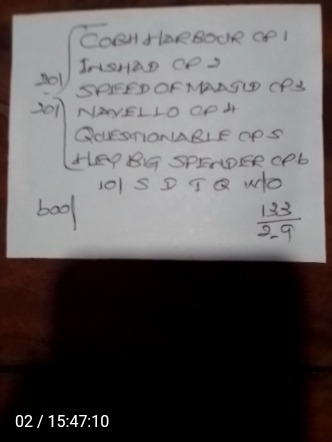 COBH HARBOUR CP 1
INSHAD CP 2
20/ SPEED OF MAASUD CP3
20/ NAVELLO CP 4
QUESTIONABLE CP 5
HEY BIG SPENDER CP6
10/ S D T Q W/O
600/ 133
2-9
02 / 15:47:10